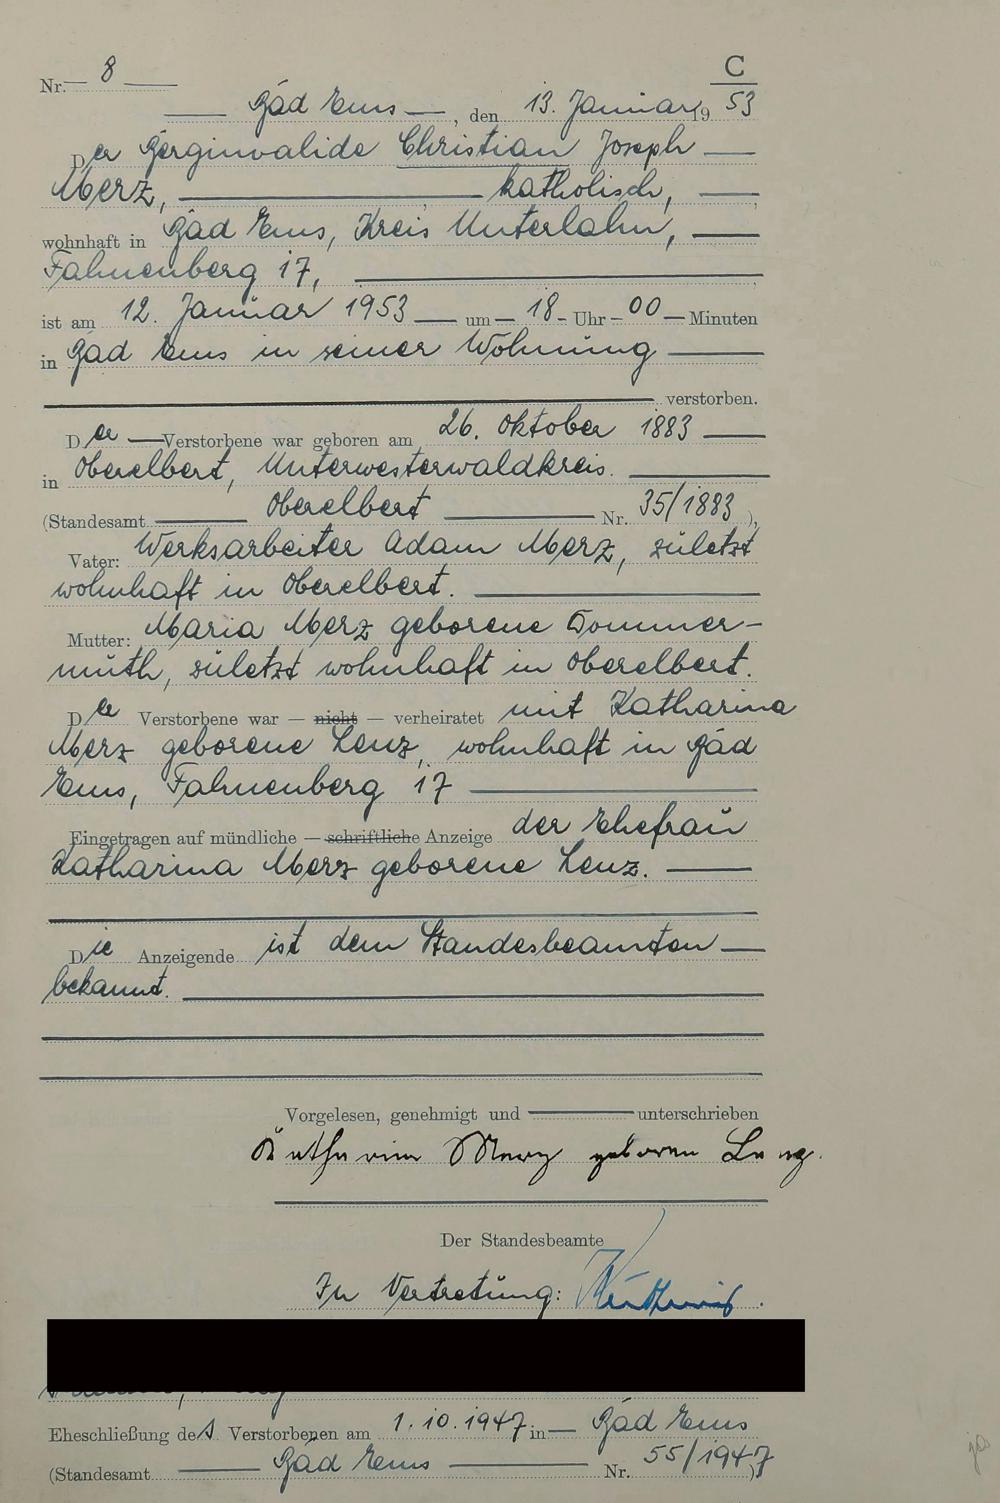 C
Nr. 8
Bad Ems, den 13. Januar 1953
Der Berginvalide Christian Joseph
Merz, katholisch,
wohnhaft in Bad Ems, Kreis Unterlahn,
Fahnenberg 17,
ist am 12. Januar 1953 um 18 Uhr 00 Minuten
in Bad Ems in seiner Wohnung
verstorben.
Der Verstorbene war geboren am 26. Oktober 1883
in Oberelbert, Unterwesterwaldkreis.
(Standesamt Oberelbert Nr. 35/1883),
Vater: Werksarbeiter Adam Merz, zuletzt
wohnhaft in Oberelbert.
Mutter: Maria Merz geborene Sommer-
muth, zuletzt wohnhaft in Oberelbert.
Der Verstorbene war — nicht — verheiratet mit Katharina
Merz geborene Lenz, wohnhaft in Bad
Ems, Fahnenberg 17
Eingetragen auf mündliche — schriftliche Anzeige der Ehefrau
Katharina Merz geborene Lenz.
Die Anzeigende ist dem Standesbeamten
bekannt.
Vorgelesen, genehmigt und unterschrieben
Katharina Merz geboren Lenz.
Der Standesbeamte
In Vertretung:
Eheschließung des Verstorbenen am 1.10.1947 in Bad Ems
(Standesamt Bad Ems Nr. 55/1947)